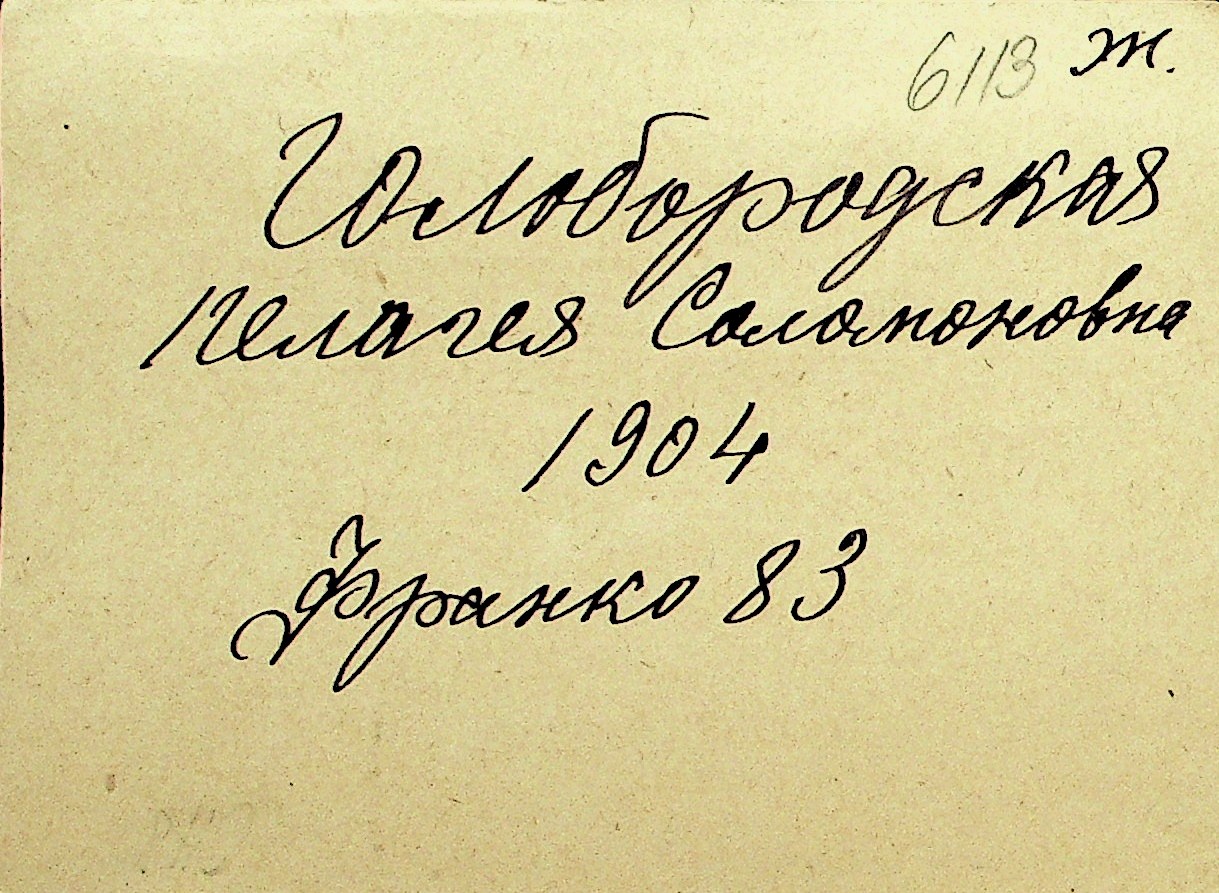 6113 ж.
Голобородская
Пелагея Соломоновна
1904
Франко 83